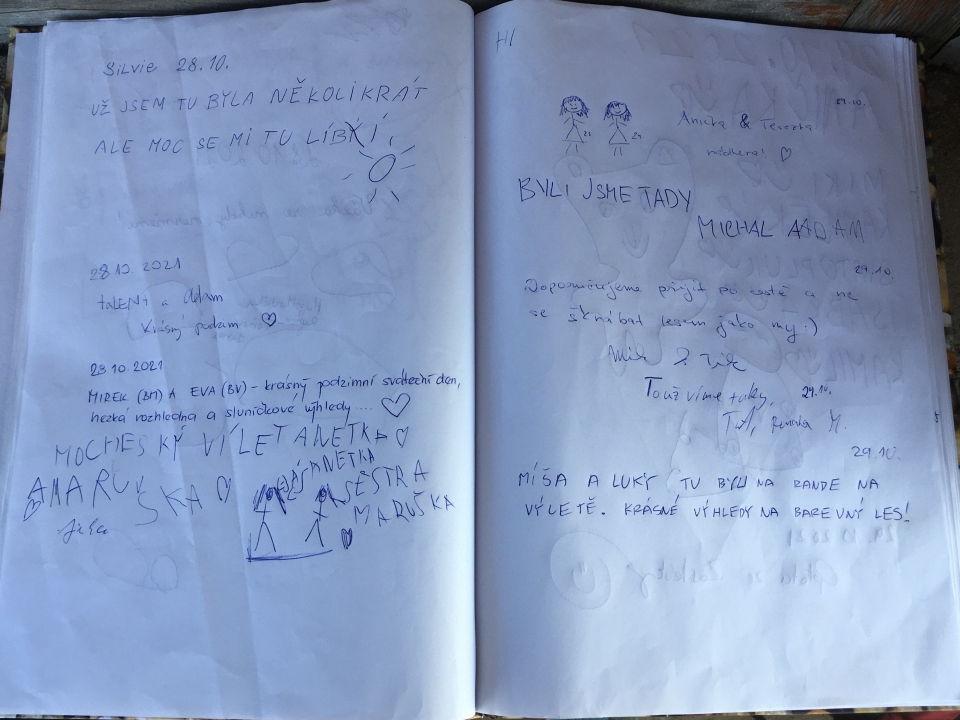 Silvie 28.10.
UŽ JSEM TU BYLA NĚKOLIKRÁT
ALE MOC SE MI TU LÍBÍ
28.10. 2021
TALENT a Adam
Krásný podzim ♡
28.10.2021
MIREK (BM) A EVA (BV) - krásný podzimní sváteční den,
hezká rozhledna a sluníčkové výhledy ... ♡
MOC HESKÝ VÍLET ANETKA ♡
A MARUŠKA ♡
ANETKA
SÉSTRA
MARUŠKA
HI
29.10.
Anička & Terezka
nádhera! ♡
BYLI JSME TADY
MICHAL A ADAM
29.10.
Doporučujeme přijít po cestě a ne
se škrábat lesem jako my :)
To už víme taky, 29.10.
Renata M.
29.10.
MÍŠA A LUKY TU BYLI NA RANDE NA
VÝLETĚ. KRÁSNÉ VÝHLEDY NA BAREVNÝ LES!